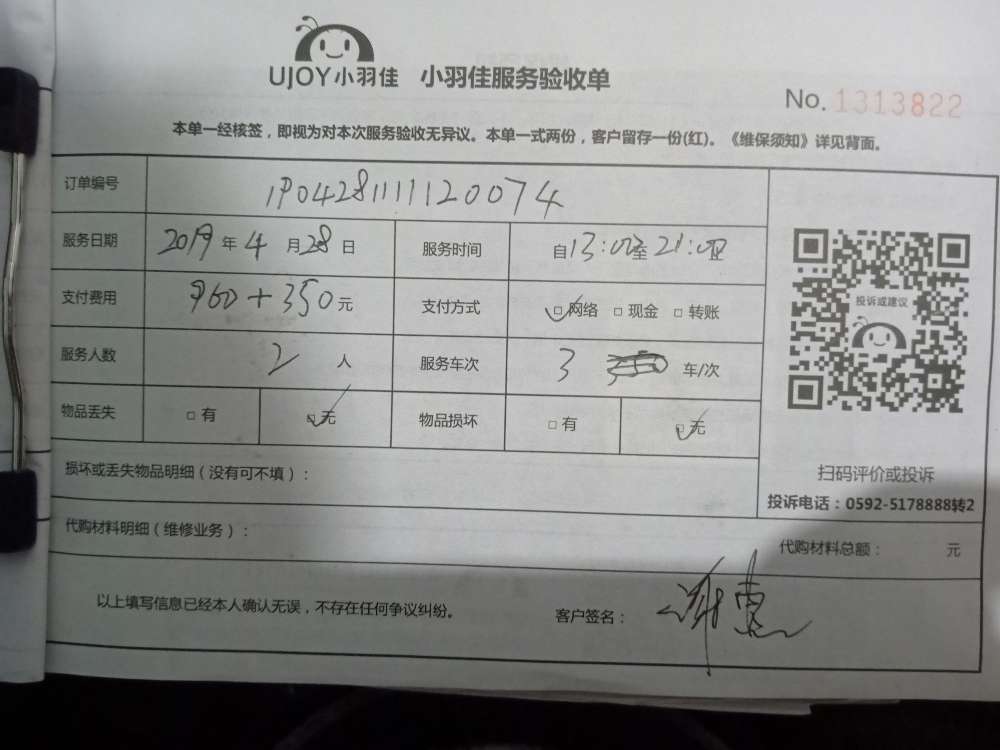 UJOY小羽佳 小羽佳服务验收单
No. 1313822
本单一经核签，即视为对本次服务验收无异议。本单一式两份，客户留存一份(红)。《维保须知》详见背面。
订单编号 1P04281111120074
服务日期 2019年4月28日 服务时间 自13:00至21:00
支付费用 960+350元 支付方式 □网络 □现金 □转账
服务人数 2人 服务车次 3 车/次
物品丢失 □有 □无 物品损坏 □有 □无
投诉或建议
扫码评价或投诉
投诉电话：0592-5178888转2
损坏或丢失物品明细（没有可不填）：
代购材料明细（维修业务）： 代购材料总额： 元
以上填写信息已经本人确认无误，不存在任何争议纠纷。 客户签名：谢惠